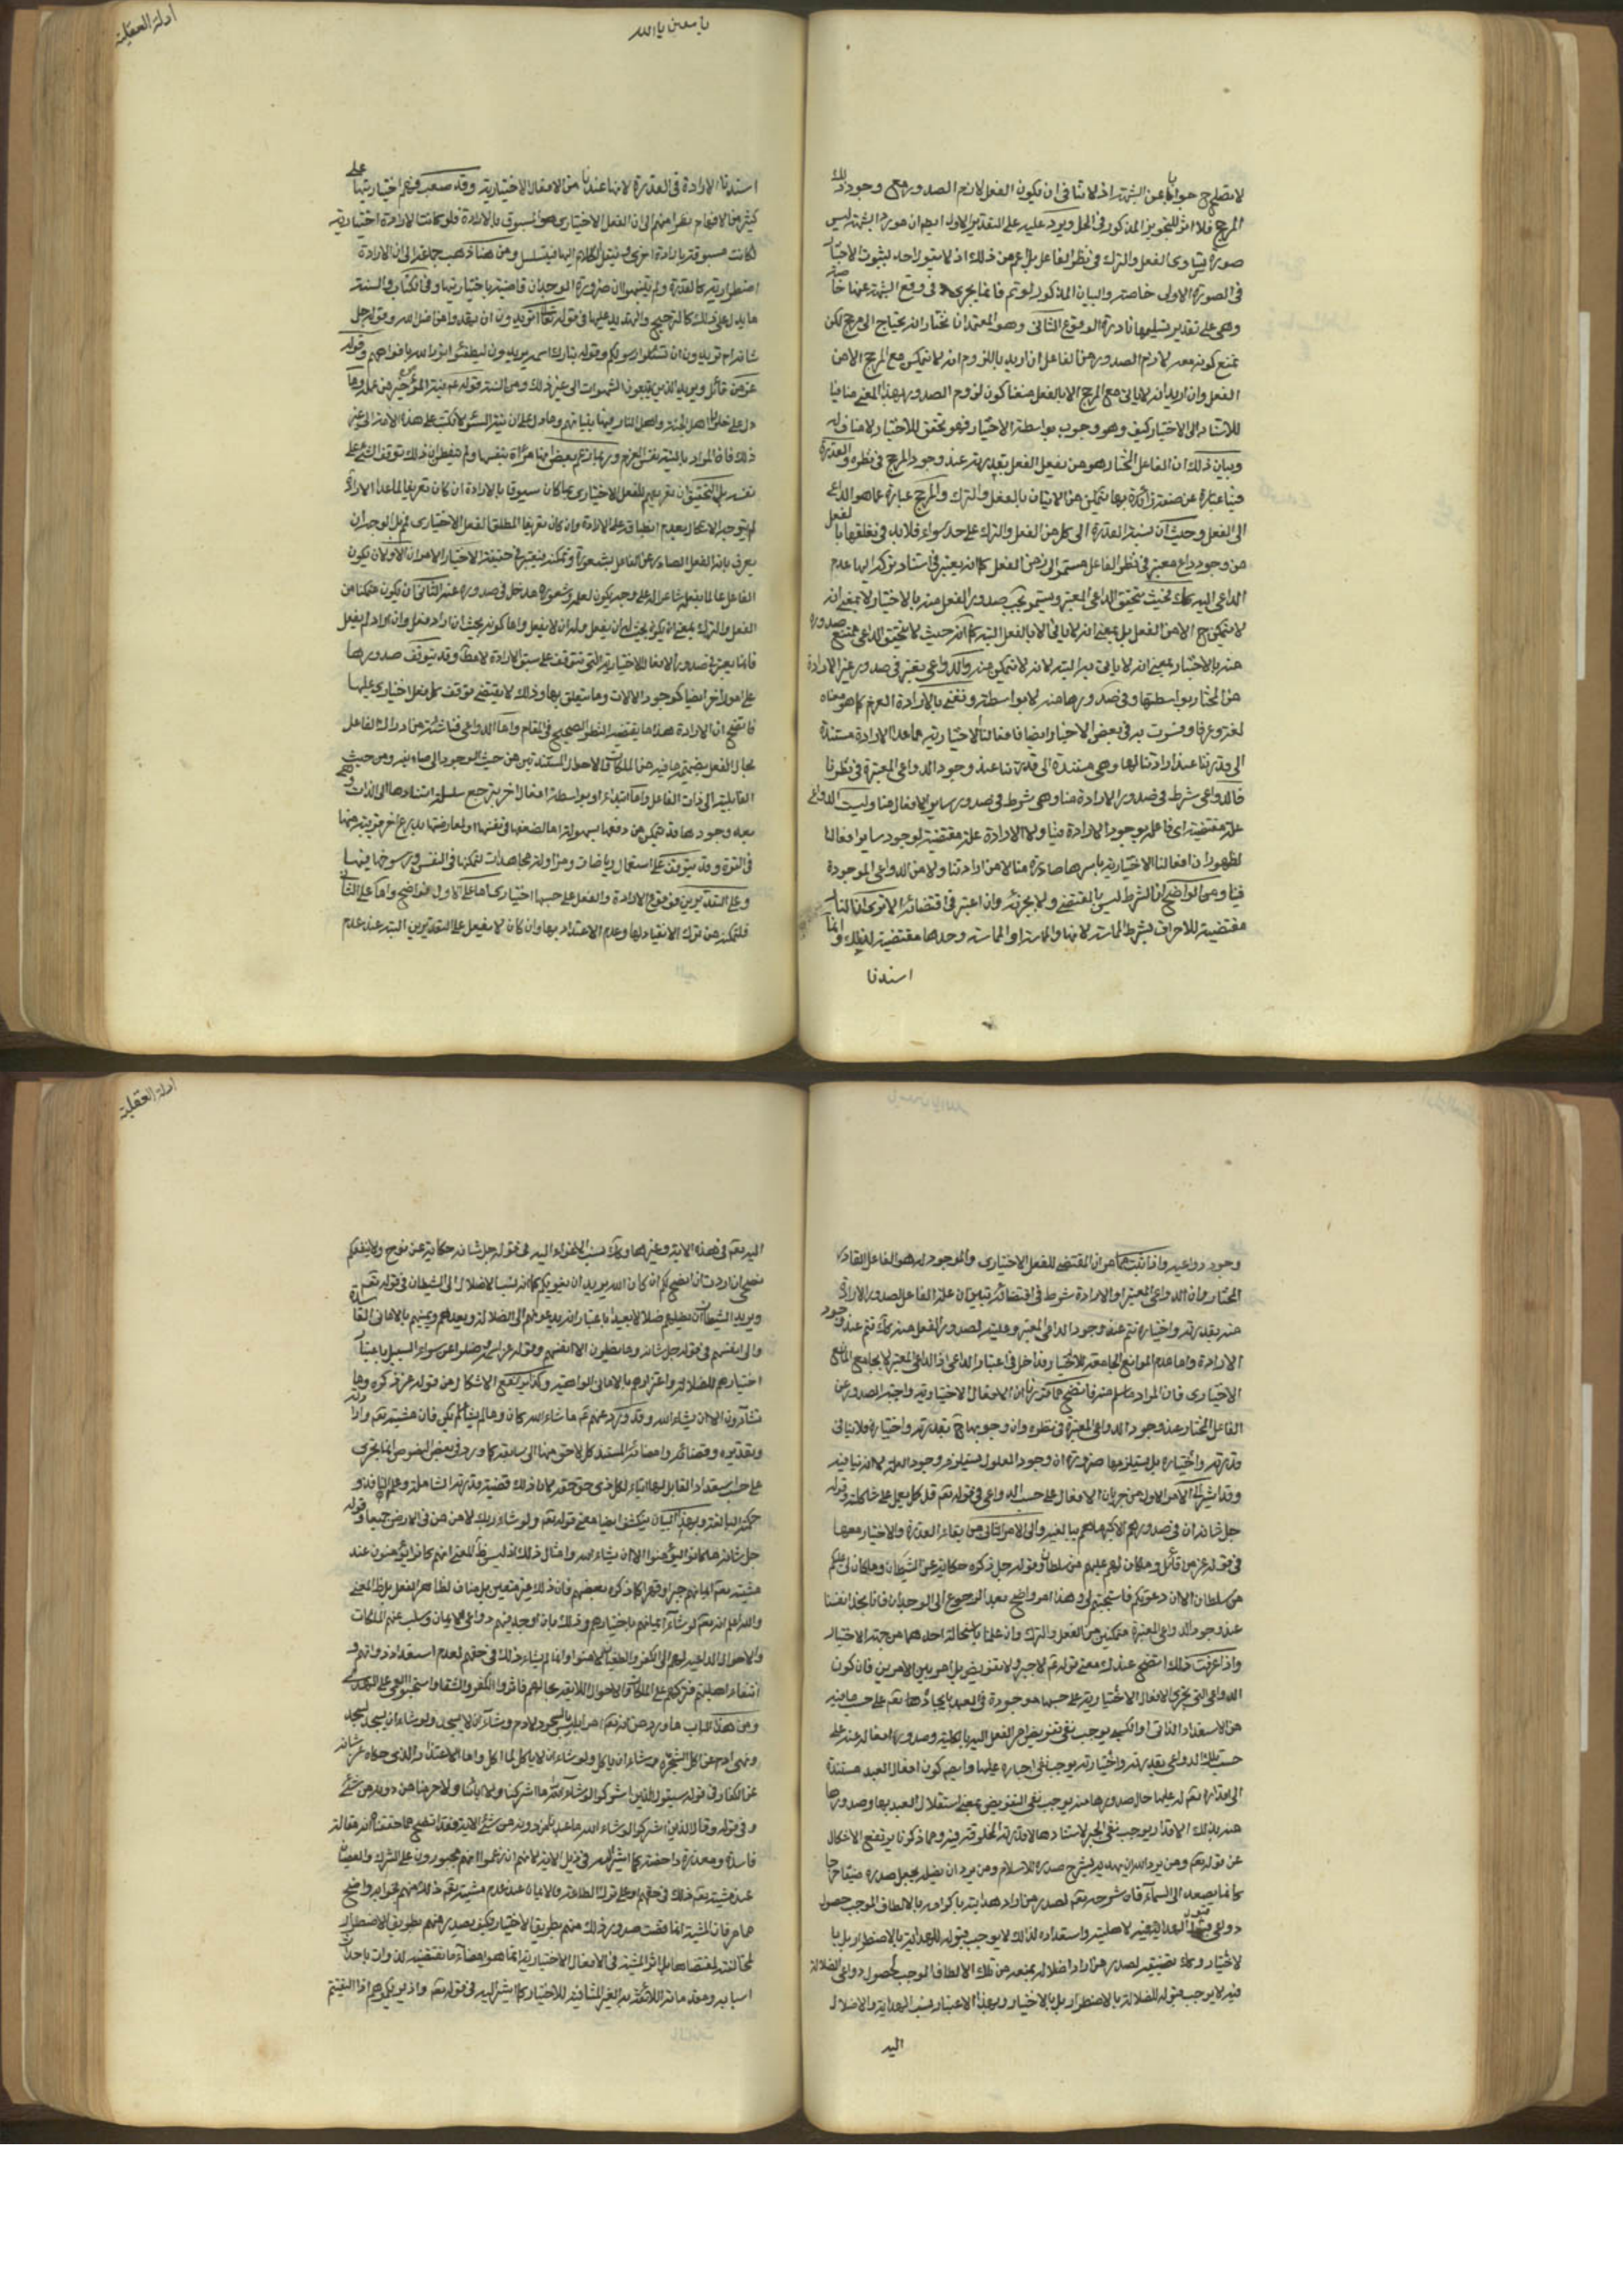 لا يصلح ح جوابا عن الشبهة اذ لا تنافى ان يكون الفعل لازم الصدور مع وجود ذلك
المرجح فلا اثر للتجويز المذكور فى الحل ويرد عليه على التقدير الاول ايضا ان مورد الشبهة ليس
صورة تساوى الفعل والترك فى نظر الفاعل بل اعم من ذلك اذ لا يقول احد بثبوت الاختيار
فى الصورة الاولى خاصة والبيان المذكور لو تم فانما يجرى فى دفع الشبهة عنها خاصة
وهى على تقدير تسليمها نادرة الوقوع الثانى وهو المعتمد انا نختار انه يحتاج الى مرجح لكن
نمنع كونه معه لازم الصدور من الفاعل ان اريد باللزوم انه لا يتمكن مع المرجح الا من
الفعل وان اريد انه لا يأتى مع المرجح الا بالفعل منعنا كون لزوم الصدور بهذا المعنى منافيا
للاستناد الى الاختيار كيف وهو وجوب بواسطة الاختيار فهو محقق للاختيار لا مناف له
وبيان ذلك ان الفاعل المختار هو من يفعل الفعل بقدرته عند وجود المرجح فى نظره والقدرة
فينا عبارة عن صفة زائدة بها يتمكن من الاتيان بالفعل والترك والمرجح عبارة عما هو الداعى
الى الفعل وحيث ان نسبة القدرة الى كل من الفعل والترك على حد سواء فلا بد فى تعلقها بالفعل
من وجود داع معتبر فى نظر الفاعل مستمر الى زمن الفعل كما انه يعتبر فى استناد تركه اليها عدم
الداعى اليه كذلك فحيث يتحقق الداعى المعتبر ويستمر يجب صدور الفعل منه بالاختيار لا بمعنى انه
لا يتمكن ح الا من الفعل بل بمعنى انه لا يأتى الا بالفعل البتة كما انه حيث لا يتحقق الداعى يمتنع صدوره
منه بالاختيار بمعنى انه لا يأتى به البتة لا انه لا يتمكن منه والدواعى يعتبر فى صدور غير الارادة
من المختار بواسطتها وفى صدورها منه لا بواسطة ونعنى بالارادة العزم كما هو معناه
لغة وعرفا وفسرت به فى بعض الاخبار ايضا فافعالنا الاختيارية ما عدا الارادة مستندة
الى قدرتنا عند ارادتنا لها وهى مستندة الى قدرتنا عند وجود الدواعى المعتبرة فى نظرنا
فالدواعى شرط فى صدور الارادة منا وهى شرط فى صدور ساير الافعال منا وليست الدواعى
علة مقتضية اى فاعلة لوجود الارادة فينا ولا الارادة علة مقتضية لوجود ساير افعالنا
لظهور ان افعالنا الاختيارية باسرها صادرة منا لا من ارادتنا ولا من الدواعى الموجودة
فينا ومن الواضح ان الشرط ليس بالمقتضى ولا بجزئه وان اعتبر فى اقتضائه الا ترى ان النار
مقتضية للاحراق بشرط المماسة لا انها والمماسة او المماسة وحدها مقتضية لذلك وانما
اسندنا
يا معين يا الله
ادلة العقلية
اسندنا الارادة فى القدرة لانها عندنا من الافعال الاختيارية وقد صعب فهم اختياريتها على
كثير من الافهام نظرا منهم الى ان الفعل الاختيارى هو المسبوق بالارادة فلو كانت الارادة اختيارية
لكانت مسبوقة بارادة اخرى وننقل الكلام اليها فيتسلسل ومن هنا ذهب جماعة الى ان الارادة
اضطرارية كالقدرة ولم يتنبهوا ان ضرورة الوجدان قاضية باختياريتها وفى الكتاب والسنة
ما يدل على ذلك كالترجيح والتهديد عليها فى قوله تعالى
شانه ام تريدون ان تسئلوا رسولكم وقوله تبارك اسمه يريدون ليطفئوا نور الله بافواههم وقوله
عز من قائل ويريد الذين يتبعون الشهوات الى غير ذلك ومن السنة قوله نية المؤمن خير من عمله وما
دل على خلود اهل الجنة واهل النار فيها بنياتهم وما دل على ان نية السوء لا تكتب على هذه الامة الى غير
ذلك فان المراد بالنية نفس العزم وربما زعم بعض انها مرادة بنفسها ولم يتفطن ان ذلك توقف الشىء على
نفسه بل التحقيق ان تعريفهم للفعل الاختيارى بما كان مسبوقا بالارادة ان كان تعريفا لما عدا الارادة
لم يتوجه الاشكال بعدم انطباقه على الارادة وان كان تعريفا المطلق الفعل الاختيارى لم بل الوجه ان
يعرف بانه الفعل الصادر عن الفاعل بشعوره وتمكنه فيعتبر فى حقيقة الاختيار الامران الاول ان يكون
الفاعل عالما بفعله شاعرا له على وجه يكون لعلمه وشعوره مدخل فى صدوره عنه الثانى ان يكون متمكنا من
الفعل والترك بمعنى انه يكون بحيث له ان يفعل وله ان لا يفعل واما كونه بحيث ان اراد فعل وان اراد لم يفعل
فانما يعتبر فى صدور الافعال الاختيارية التى تتوقف على سبق الارادة لا مطلقا وقد يتوقف صدورها
على امور اخر ايضا كوجود الالات وما يتعلق بها وذلك لا يقتضى توقف كل فعل اختيارى عليها
فاتضح ان الارادة هذا ما يقتضيه النظر الصحيح فى المقام واما الدواعى فناشئة من ادراك الفاعل
بحال الفعل بضميمة ما فيه من الملكات والاحوال المستندتين من حيث الوجود الى مباديه ومن حيث
القابلية الى ذات الفاعل واما ابتداء او بواسطة افعال اخر يرجع سلسلة استنادها الى الذات وهى
بعد وجودها قد يتمكن من دفعها بسهولة اما لضعفها فى نفسها او لمعارضتها بداع اخر قريبة منها
فى القوة وقد يتوقف على استعمال رياضات ومزاولة مجاهدات لتمكنها فى النفس ورسوخها فيها
وعلى التقديرين فوقوع الارادة والفعل على حسبها اختيارى اما على الاول فواضح واما على الثانى
فلتمكنه من ترك الانقياد لها وعدم الاعتداد بها وان كان لا يفعل على التقديرين البتة عند عدم
وجود دواعيه واذا ثبت مما مر ان المقتضى للفعل الاختيارى والموجد له هو الفاعل القادر
المختار وان الداعى المعتبر او الارادة شرط فى اقتضائه تبين ان علة الفاعل لصدور الارادة
منه بقدرته واختياره تتم عند وجود الداعى المعتبر وعليته لصدور الفعل منه كذلك تتم عند وجود
الارادة واما عدم الموانع الجامعة للاختيار فداخل فى اعتبار الداعى اذ الداعى المعتبر لا يجامع المانع
الاختيارى فان المراد ما سلم منه فاتضح مما قررنا ان الافعال الاختيارية واجبة الصدور عن
الفاعل المختار عند وجود الدواعى المعتبرة فى نظره وان وجوبها ح بقدرته واختياره فلا ينافى
قدرته واختياره بل يستلزمها ضرورة ان وجود المعلول يستلزم وجود العلة لا انه ينافيه
وقد اشير الى الامر الاول من جريان الافعال على حسب الدواعى فى قوله تعم قل كل يعمل على شاكلته وقوله
جل شانه ان فى صدورهم الا كبر ما هم ببالغيه والى الامر الثانى من بقاء القدرة والاختيار معها
فى قوله عز من قائل وما كان له عليهم من سلطان وقوله جل ذكره حكاية عن الشيطان وما كان لى عليكم
من سلطان الا ان دعوتكم فاستجبتم لى وهذا امر واضح بعد الرجوع الى الوجدان فانا نجد انفسنا
عند وجود الدواعى المعتبرة متمكنين من الفعل والترك وان علمنا باستحالة احدهما من جهة الاختيار
واذا عرفت ذلك اتضح عندك معنى قوله لا جبر ولا تفويض بل امر بين الامرين فان كون
الدواعى التى يجرى الافعال الاختيارية على حسبها موجودة فى العبد بايجاده تعم على حسب ما فيه
من الاستعداد الذاتى او الكسبى يوجب نفى تفويض امر الفعل اليه بالكلية وصدور افعاله عنه على
حسب تلك الدواعى بقدرته واختياره يوجب نفى اجباره عليها وايضا كون افعال العبد مستندة
الى اقداره تعم له عليها حال صدورها منه يوجب نفى التفويض بمعنى استقلال العبد بها وصدورها
منه بذلك الاقدار يوجب نفى الجبر لاستنادها الى قدرته المخلوقة فيه وبما ذكرنا يرتفع الاشكال
عن قوله تعم ومن يرد الله ان يهديه يشرح صدره للاسلام ومن يرد ان يضله يجعل صدره ضيقا حرجا
كانما يصعد الى السماء فان شرحه تعم لصدر من اراد هدايته باكرامه بالالطاف الموجب حصول
دواعى قبول الهداية فيه لاهليته واستعداده لذلك لا يوجب قبوله للهداية بالاضطرار بل با
لاختيار وكذلك تضييقه لصدر من اراد اضلاله بمنعه من تلك الالطاف الموجب لحصول دواعى الضلالة
فيه لا يوجب قبوله للضلالة بالاضطرار بل بالاختيار وبهذا الاعتبار ينسب الهداية والاضلال
اليه
ادلة العقلية
اليه تعم فى هذه الاية وغيرها وكذلك نسب الاغواء اليه فى قوله جل شانه حكاية عن نوح ولا ينفعكم
نصحى ان اردت ان انصح لكم ان كان الله يريد ان يغويكم كما انه نسب الاضلال الى الشيطان فى قوله تعم
ويريد الشيطان ان يضلهم ضلالا بعيدا باعتبار انه يدعوهم الى الضلالة ويعدهم ويمنيهم بالامانى الفاسدة
والى انفسهم فى قوله جل شانه وما يضلون الا انفسهم وقوله عز اسمه ضلوا عن سواء السبيل باعتبار
اختيارهم للضلالة واغترارهم بالامانى الواهية وكذا يرتفع الاشكال من قوله عز ذكره وما
تشاؤون الا ان يشاء الله وقد ورد عنهم ما شاء الله كان وما لم يشأ لم يكن فان مشيته تعم وارادته
وتقديره وقضائه وامضائه المستند كل لاحق منها الى سابقه كما ورد فى بعض النصوص انما يجرى
على حسب استعداد القابل لها ايتاء لكل ذى حق حقه لان ذلك قضية قدرته الشاملة وعلمه النافذ و
حكمته البالغة وبهذا البيان ينكشف ايضا معنى قوله تعم ولو شاء ربك لامن من فى الارض جميعا وقوله
جل شانه ما كانوا ليؤمنوا الا ان يشاء الله وامثال ذلك اذ ليس المعنى انهم كانوا يؤمنون عند
مشيته تعم ايمانهم جبرا وقهرا كما ذكره بعضهم فان ذلك غير متعين بل مناف لظاهر الفعل بل المعنى
والله اعلم انه تعم لو شاء ايمانهم باختيارهم وذلك بان اوجد فيهم دواعى الايمان وسلب عنهم الملكات
والاحوال الداعية لهم الى الكفر والطغيان لامنوا وانما لم يشاء ذلك فى حقهم لعدم استعداد ذواتهم و
انتفاء اهليتهم فتركهم على الملكات والاحوال اللايقة بحالهم فاثروا الكفر والشقاء واستحبوا العمى على الهدى
ومن هذا الباب ما ورد من انه تعم امر ابليس بالسجود لادم وشاء ان لا يسجد ولو شاء ان يسجد لسجد
ونهى ادم عن اكل الشجرة وشاء ان ياكل ولو شاء ان لا ياكل لما اكل واما الاعتذار الذى حكاه عز شانه
عن الكفار فى قوله سيقول الذين اشركوا لو شاء الله ما اشركنا ولا اباؤنا ولا حرمنا من دونه من شىء
و فى قوله وقال الذين اشركوا لو شاء الله ما عبدنا من دونه من شىء الاية فقد اتضح مما حققنا انه مقالة
فاسدة ومعذرة داحضة كما اشير اليه فى ذيل الاية لانهم ان زعموا انهم مجبورون على الشرك والعصيان
عند مشيته تعم ذلك فى حقهم وعلى ترك الطاعة والايمان عند عدم مشيته تعم ذلك منهم فجوابه واضح
مما مر فان المشية انما اقتضت صدور ذلك منهم بطريق الاختيار وكيف يصدر منهم بطريق الاضطرار
لمخالفته لمقتضاها بل اثر المشية فى الافعال الاختيارية انما هو امضاء ما يقتضيه الذوات باحداث
اسبابه ومعداته اللائقة به الغير المنافية للاختيار كما اشير اليه فى قوله تعم واذ يريكموهم اذ التقيتم